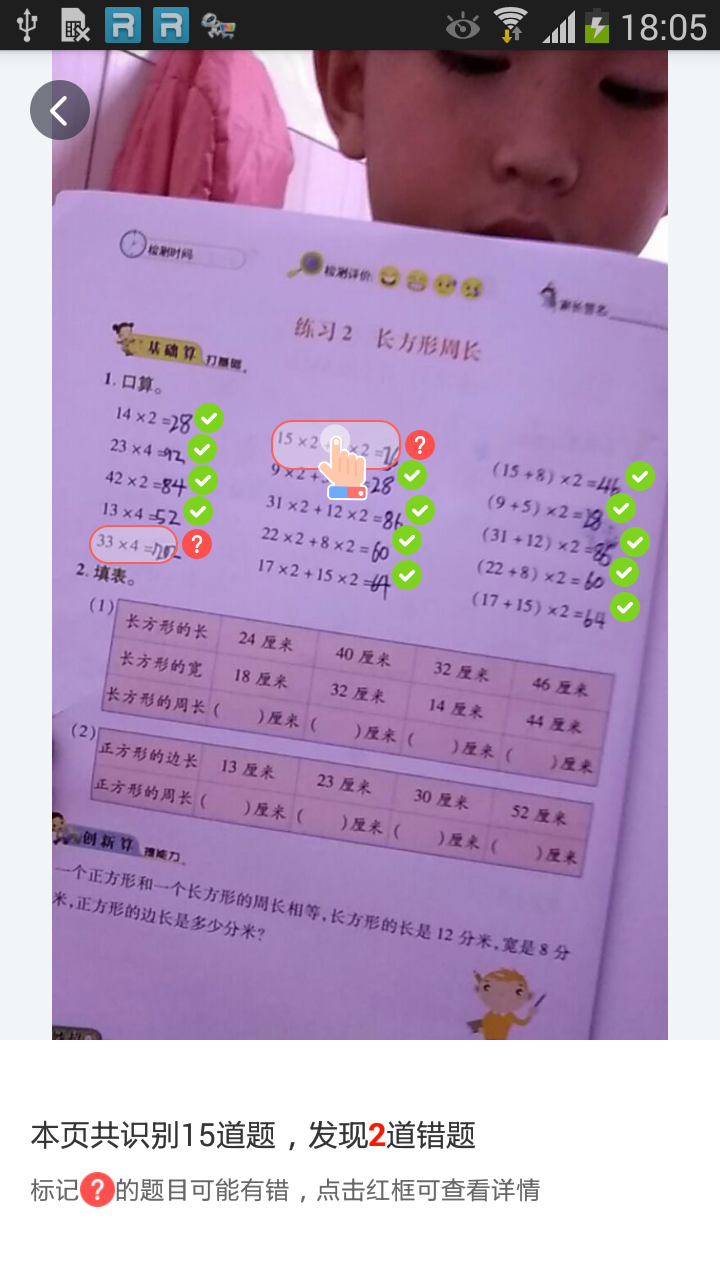 18:05
检测时间
检测评价:
家长签名
练习2 长方形周长
基础算 打基础。
1. 口算。
14×2=28
23×4=92
42×2=84
13×4=52
33×4=
15×2 ×2=
9×2+ =28
31×2+12×2=86
22×2+8×2=60
17×2+15×2=64
(15+8)×2=46
(9+5)×2=28
(31+12)×2=86
(22+8)×2=60
(17+15)×2=64
2. 填表。
(1)
长方形的长 24厘米 40厘米 32厘米 46厘米
长方形的宽 18厘米 32厘米 14厘米 44厘米
长方形的周长 ( )厘米 ( )厘米 ( )厘米 ( )厘米
(2)
正方形的边长 13厘米 23厘米 30厘米 52厘米
正方形的周长 ( )厘米 ( )厘米 ( )厘米 ( )厘米
创新算 提能力。
一个正方形和一个长方形的周长相等,长方形的长是12分米,宽是8分
米,正方形的边长是多少分米?
本页共识别15道题，发现2道错题
标记?的题目可能有错，点击红框可查看详情